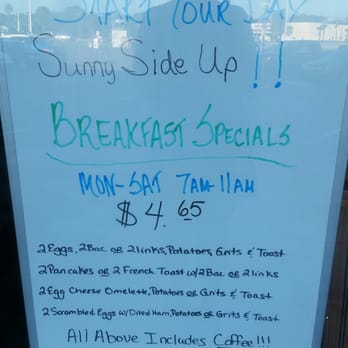 START YOUR DAY
Sunny Side Up !!
BREAKFAST SPECIALS
MON-SAT 7AM-11AM
$4.65
2 Eggs, 2 Bac or 2 links, Potatoes, Grits & Toast
2 Pancakes or 2 French Toast w/2 Bac or 2 links
2 Egg Cheese Omelette, Potatos or Grits & Toast
2 Scrambled Eggs w/Diced Ham, Potatos or Grits & Toast
All Above Includes Coffee!!!